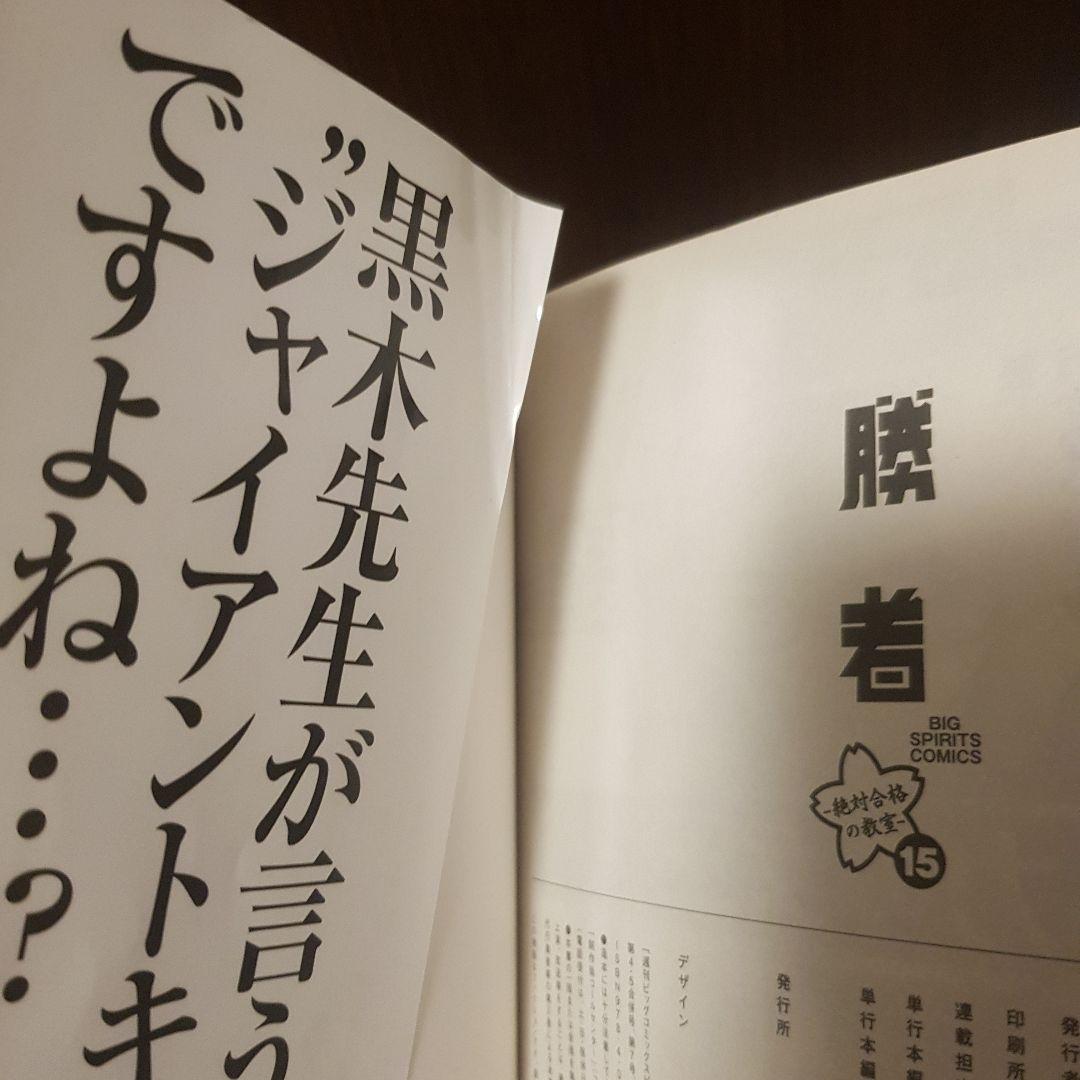 黒木先生が言う
”ジャイアントキ
ですよね・・・・?
勝者
BIG
SPIRITS
COMICS
-絶対合格
の教室-
15
発行者
印刷所
連載担
単行本編
単行本編
発行所
デザイン